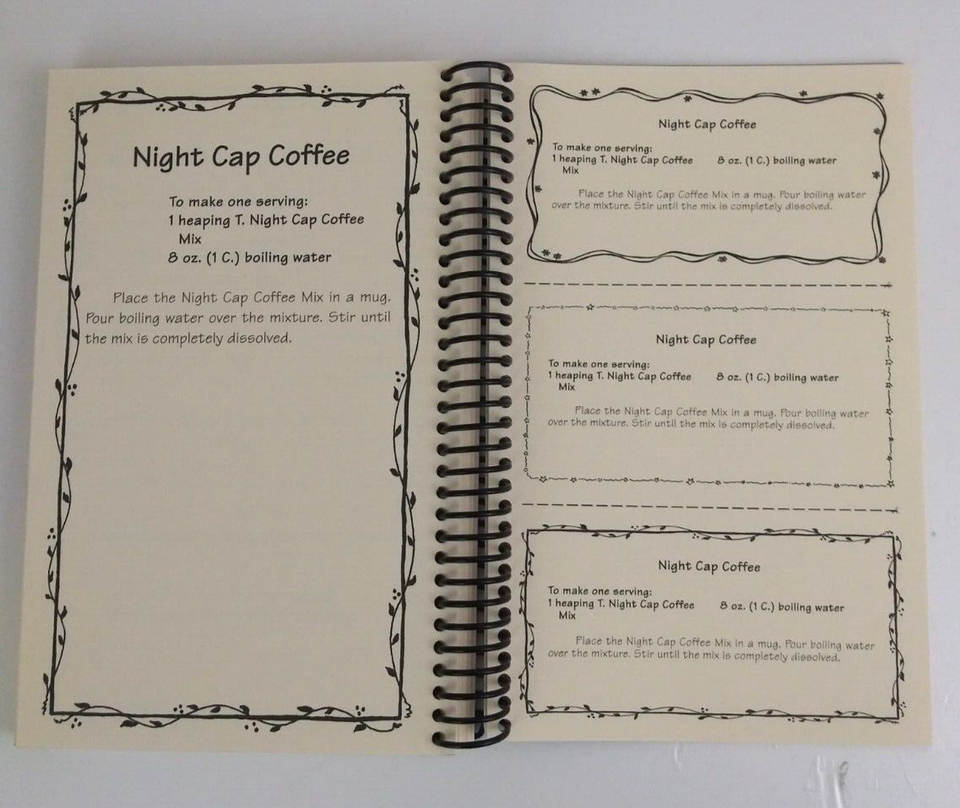 Night Cap Coffee
To make one serving:
1 heaping T. Night Cap Coffee
Mix
8 oz. (1 C.) boiling water
Place the Night Cap Coffee Mix in a mug.
Pour boiling water over the mixture. Stir until
the mix is completely dissolved.
Night Cap Coffee
To make one serving:
1 heaping T. Night Cap Coffee 8 oz. (1 C.) boiling water
Mix
Place the Night Cap Coffee Mix in a mug. Pour boiling water
over the mixture. Stir until the mix is completely dissolved.
Night Cap Coffee
To make one serving:
1 heaping T. Night Cap Coffee 8 oz. (1 C.) boiling water
Mix
Place the Night Cap Coffee Mix in a mug. Pour boiling water
over the mixture. Stir until the mix is completely dissolved.
Night Cap Coffee
To make one serving:
1 heaping T. Night Cap Coffee 8 oz. (1 C.) boiling water
Mix
Place the Night Cap Coffee Mix in a mug. Pour boiling water
over the mixture. Stir until the mix is completely dissolved.